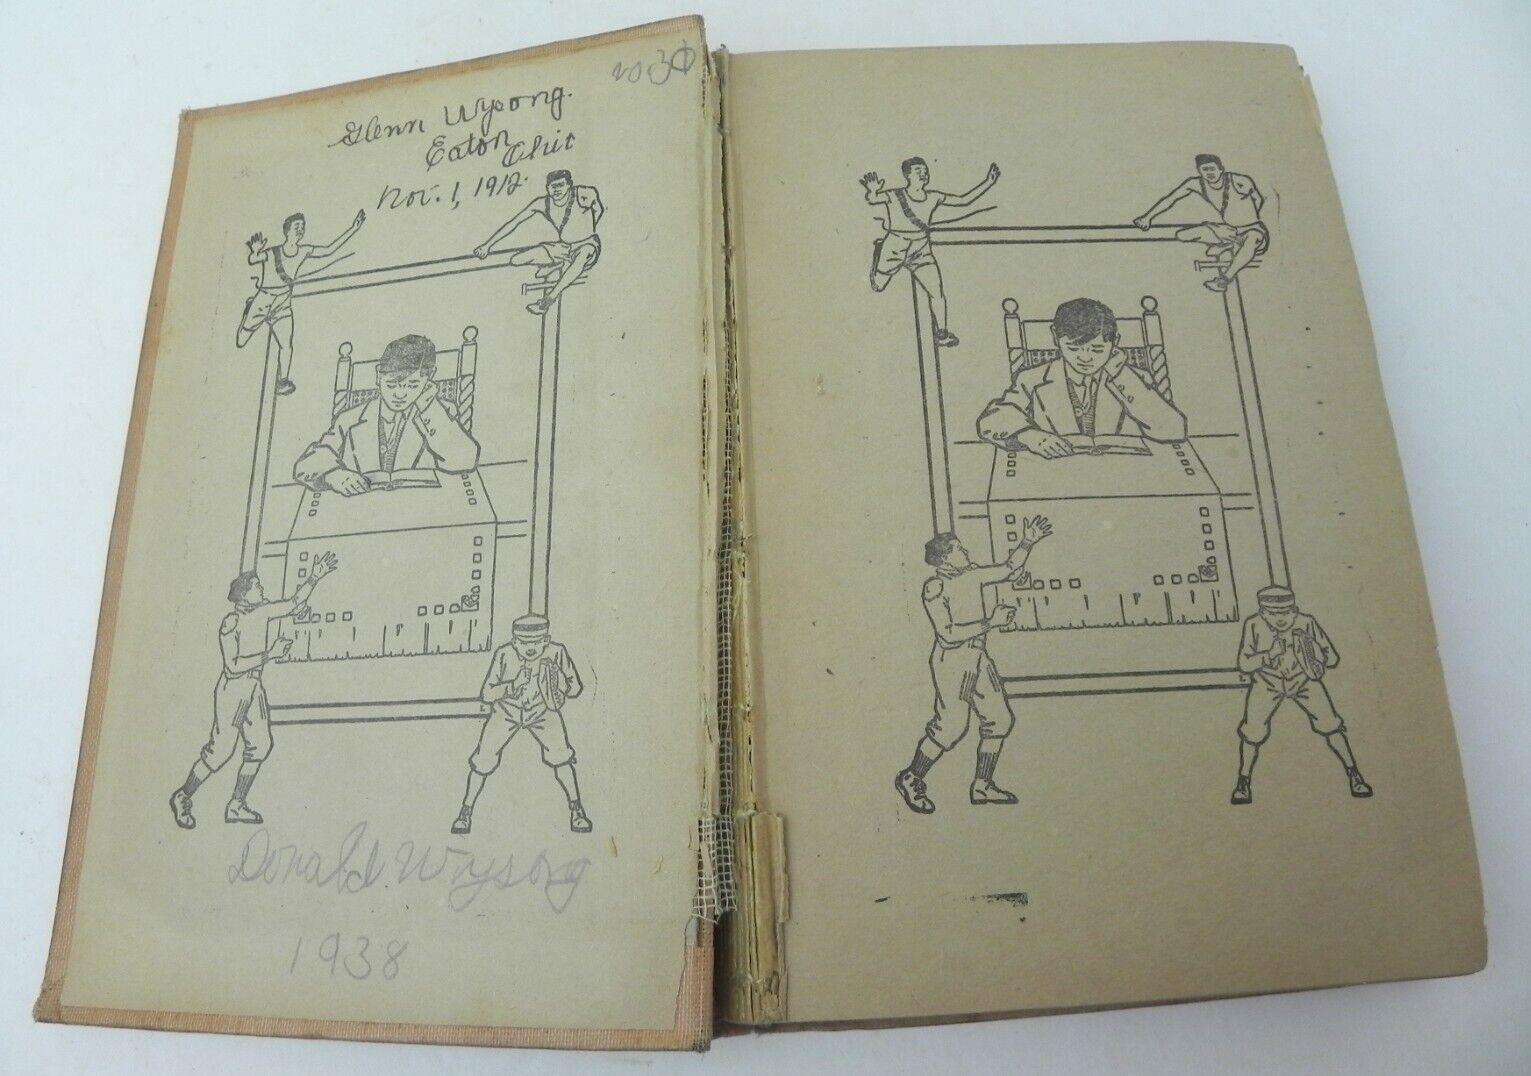 Glenn Wysong.
Eaton
Ohio
Nov. 1, 1912.
Donald Wysong
1938